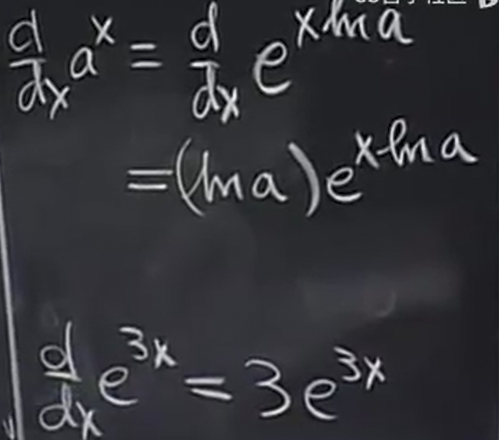 d/dx a^x = d/dx e^(x ln a)
= (ln a) e^(x·ln a)
d/dx e^(3x) = 3e^(3x)